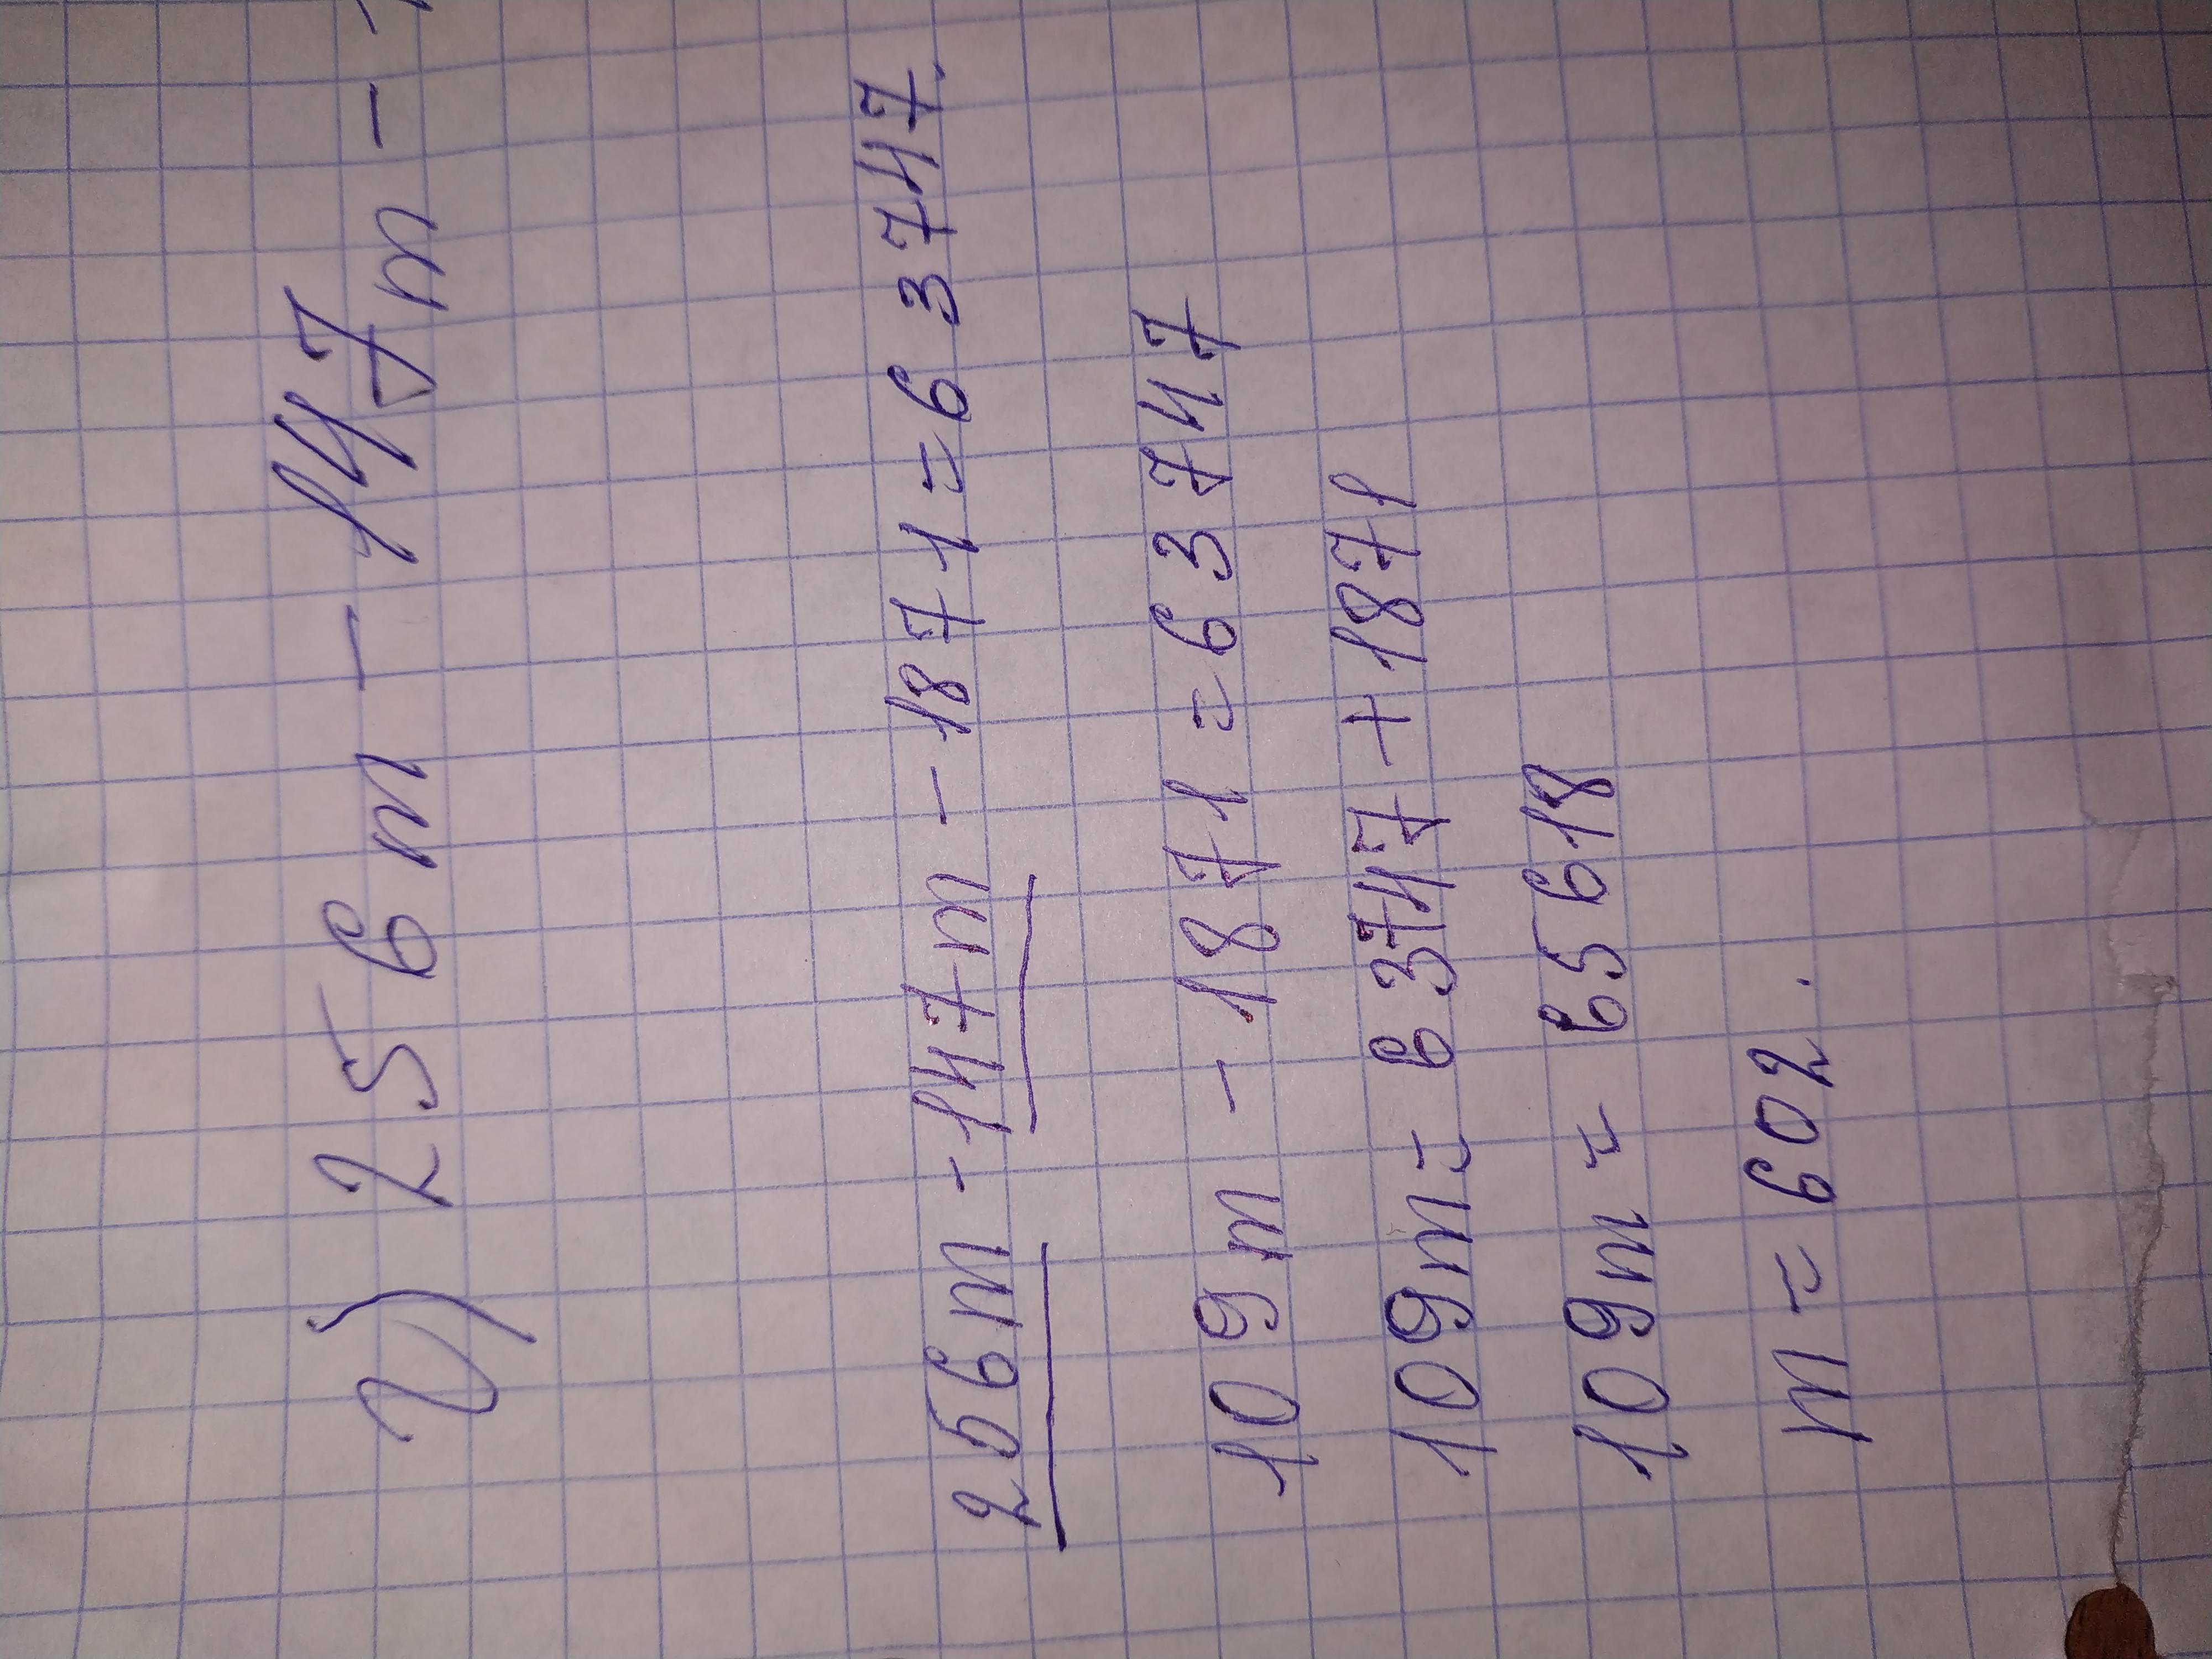 г) 256m - 147m -
256m - 147m - 1871 = 63747.
109m - 1871 = 63747
109m = 63747 + 1871
109m = 65618
m = 602.